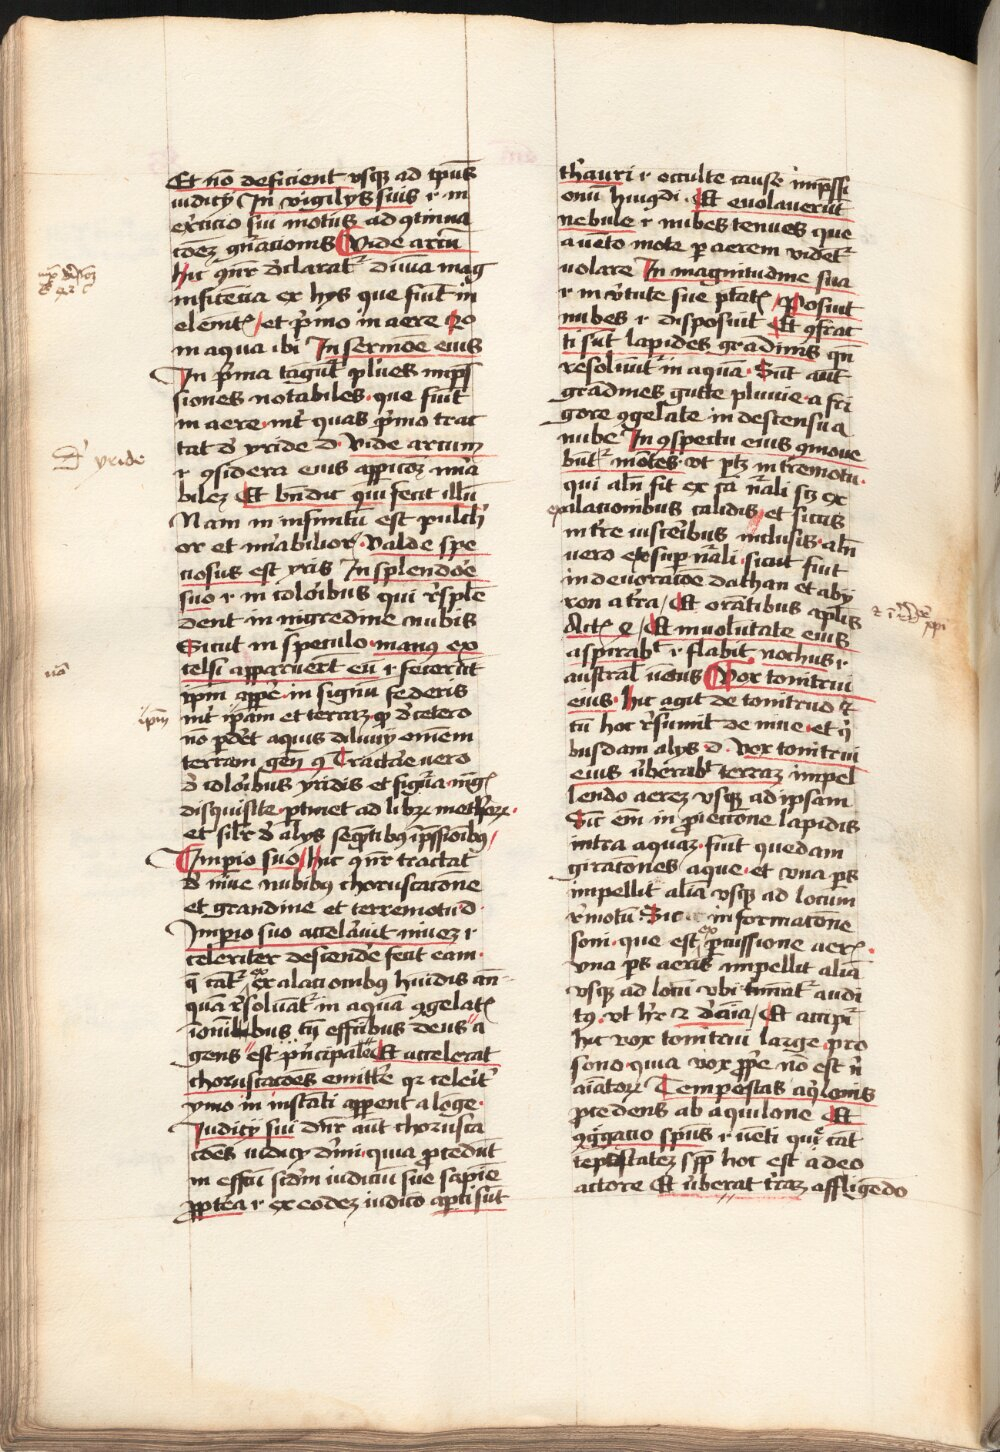 Et nō deficient vsqꝫ ad tp̄us
iudicij In vigilijs suis .i. in
ex̄ticio sui motus ad ꝯtinua
tōeꝫ gn̄ationis Vide arcū
hic ꝯn̄r declaratᷣ diuīa mag
nificētia ex hijs que fiūt in
elemētꝭ / et pͥmo in aere Sō
in aqua ibi In sermōe eius
In pͥma tāgūtᷣ plūes imp̄s
siones notabiles · que fiūt
in aere · int̄ quas pͥmo trac
tat dͤ yride d. Vide arcum
.i. ꝯsidera eius app̄icōꝫ mͥa
bileꝫ Et bn̄dic qui fecit illū
Nam in infinitū est pulchͥ
or et mͥabilior / Valde spe
ciosus est yris In splendoͤe
suo .i. in coloͥibus qui r̄sple
dent in nigredine nubis
Sicut in speculo · manꝰ ex
celsi apparuerūt eū .i. fecerūt
ip̄m app̄e · in signū federis
int̄ ip̄am et terraꝫ ꝙ dͤcetero
nō p̄det aquis diluuij omēm
terram gen̄ 9 Tractāe vero
dͤ coloͥibus yridis et figͥa · mgꝭ
disquisite · ptinet ad libꝝ metheoꝝ ·
et silͥr dͤ alijs seqn̄tibꝰ ip̄ssionibꝰ /
Impio suo / hic ꝯn̄r tractat
dͤ niue nubibꝰ choruscatōne
et grandine et terremotu d.
Impio suo accelͥauit niueꝫ .i.
celeriter descendͤe fecit eam ·
q̄ cātᷣ ex alationibꝰ hūidis an̄
quā r̄soluātᷣ in aquā ꝯgelatꝭ
ionibus tn̄ effcībus deus a
gens est pͥncipalͥ Et accelerat
choruscatōes emittͤe qꝛ celeͥtᷣ
ymo in instāti appent a lōge ·
Iudicij sui dn̄r aūt chorusca
tōes iudicij dn̄i · quia pcedūt
in effcū scd̄m iudiciū sue sapīe
pp̄tea .i. ex eodeꝫ iudicō apti sūt
thͣauri .i. occulte cause imp̄ssi
onū huiꝯdi · Et euolauerūt
nebule .i. nubes tenues que
a uēto mote p aerem vidētᷣ
volare In magnitudine sua
.i. in v̄tute sue ptātꝭ / Posuit
nubes .i. disposuit Et ꝯfrac
ti sūt lapides grādinis qn̄
resoluūt in aquā · Sūt aūt
grādines gutte pluuie a fri
gore ꝯgelate in descensu a
nube In ꝯspectu eius ꝯmoue
būtᷣ mōtes · vt ptꝫ in tͤremotu ·
qui alͥn fit ex cā nͣali scꝫ ex
exalationibus calidis et siccis
in tͤre visceribus inclusis · alͥn
vero ex supͥnͣali · sicut fiut
in deuoratōe dathan et aby
ron a tͤra / Et orātibus apl̄is
Actꝭ 4 / Et in volūtate eius
aspirabᷣ .i. flabit nothus .i.
australͥ uētus Vox tonitrui
eius · hic agit de tonitruo ⁊
cū hoc r̄sumit de niue · et qͥ
busdam alijs d. Vox tonitrui
eius v̄berabᷣ terraꝫ impel
lendo aereꝫ vsqꝫ ad ipsam
Sic em̄ in piectōne lapidis
intra aquaꝫ · fiūt quedam
giratōnes aque · et vna ps
impellit aliā vsqꝫ ad locum
r̄motū · Sic in formatōne
soni · que est ex pcussione aerꝭ ·
vna ps aeris impellit aliā
vsqꝫ ad locū vbi tmīatᷣ audi
tꝰ · vt hͬ 2 de aīa / Et accipiᷣ
hic vox tonitrui large pro
sono · quia vox pp̄e nō est n̄
aīatoꝝ Tempestas aq̄lonis
pcedens ab aquilone Et
ꝯgͥgatio sp̄us .i. uēti quiᷣ cāt
tēpestateꝫ sꝑ hoc est a deo
actore Et v̄berat tͤraꝫ affligēdo
Dͤ yride
ip̄m